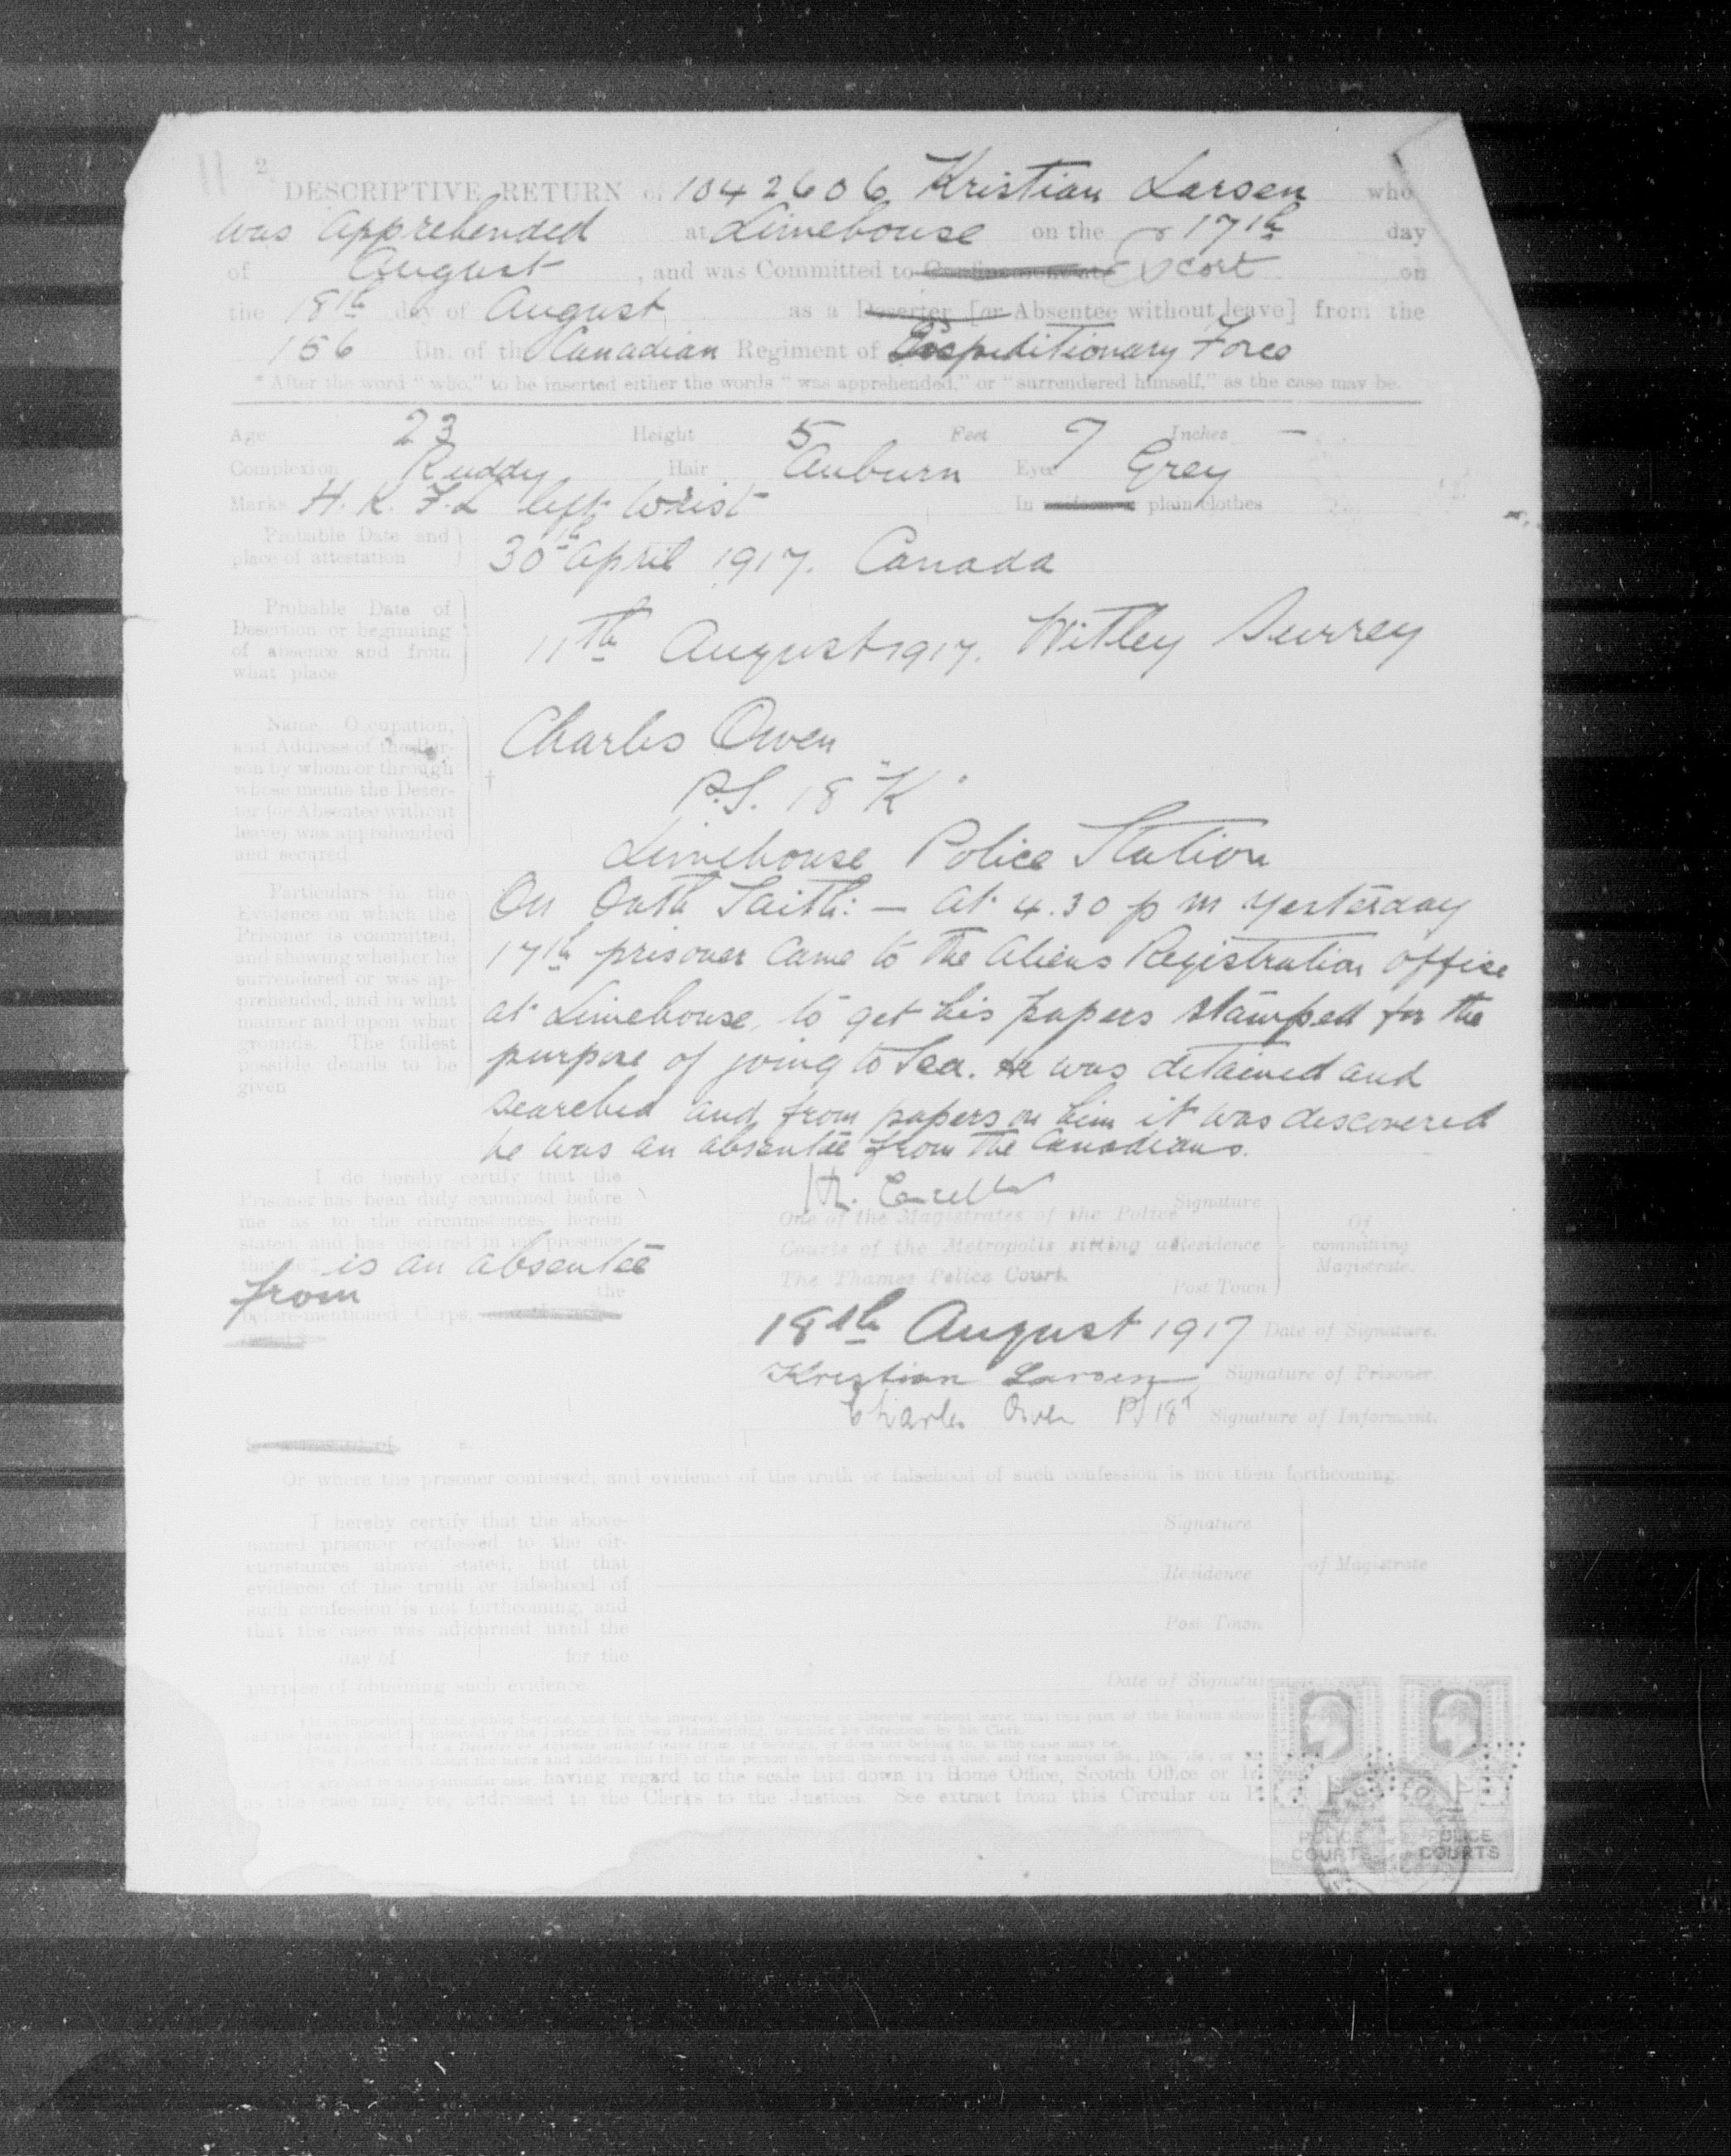 2
DESCRIPTIVE RETURN of 1042606 Kristian Larsen who
was apprehended at Limehouse on the 17th day
of August, and was Committed to Escort on
the 18th day of August as a Deserter [or Absentee without leave] from the
156 Bn. of the Canadian Regiment of Expeditionary Force
* After the word "who," to be inserted either the words "was apprehended," or "surrendered himself," as the case may be.
Age 23 Height 5 Feet 7 Inches —
Complexion Ruddy Hair Auburn Eyes Grey
Marks H. K. F. L left wrist In uniform or plain clothes
Probable Date and place of attestation
30th April 1917. Canada
Probable Date of
Desertion or beginning
of absence and from
what place
11th August 1917. Witley Surrey
Name, Occupation,
and Address of the Per-
son by whom or through
whose means the Deser-
ter (or Absentee without
leave) was apprehended
and secured
†
Charles Owen
P.S. 18 "K"
Limehouse Police Station
Particulars in the
Evidence on which the
Prisoner is committed,
and shewing whether he
surrendered or was ap-
prehended, and in what
manner and upon what
grounds. The fullest
possible details to be
given
On Oath Saith: — at 4.30 p m yesterday
17th prisoner came to the Aliens Registration office
at Limehouse, to get his papers stamped for the
purpose of going to Sea. He was detained and
searched and from papers on him it was discovered
he was an absentee from the Canadians.
I do hereby certify that the
Prisoner has been duly examined before
me as to the circumstances herein
stated, and has declared in my presence
that he is an absentee
from the
before-mentioned Corps,
Signature
One of the Magistrates of the Police
Courts of the Metropolis sitting at Residence
The Thames Police Court. Post Town
Of
committing
Magistrate.
18th August 1917 Date of Signature.
Kristian Larsen Signature of Prisoner.
Charles Owen PS 18 Signature of Informant.
Or where the prisoner confessed, and evidence of the truth or falsehood of such confession is not then forthcoming.
I hereby certify that the above-
named prisoner confessed to the cir-
cumstances above stated, but that
evidence of the truth or falsehood of
such confession is not forthcoming, and
that the case was adjourned until the
day of for the
purpose of obtaining such evidence.
Signature
Residence
Post Town
of Magistrate
Date of Signature
having regard to the scale laid down in Home Office, Scotch Office or
as the case may be, addressed to the Clerks to the Justices. See extract from this Circular on
POLICE
COURTS
POLICE
COURTS